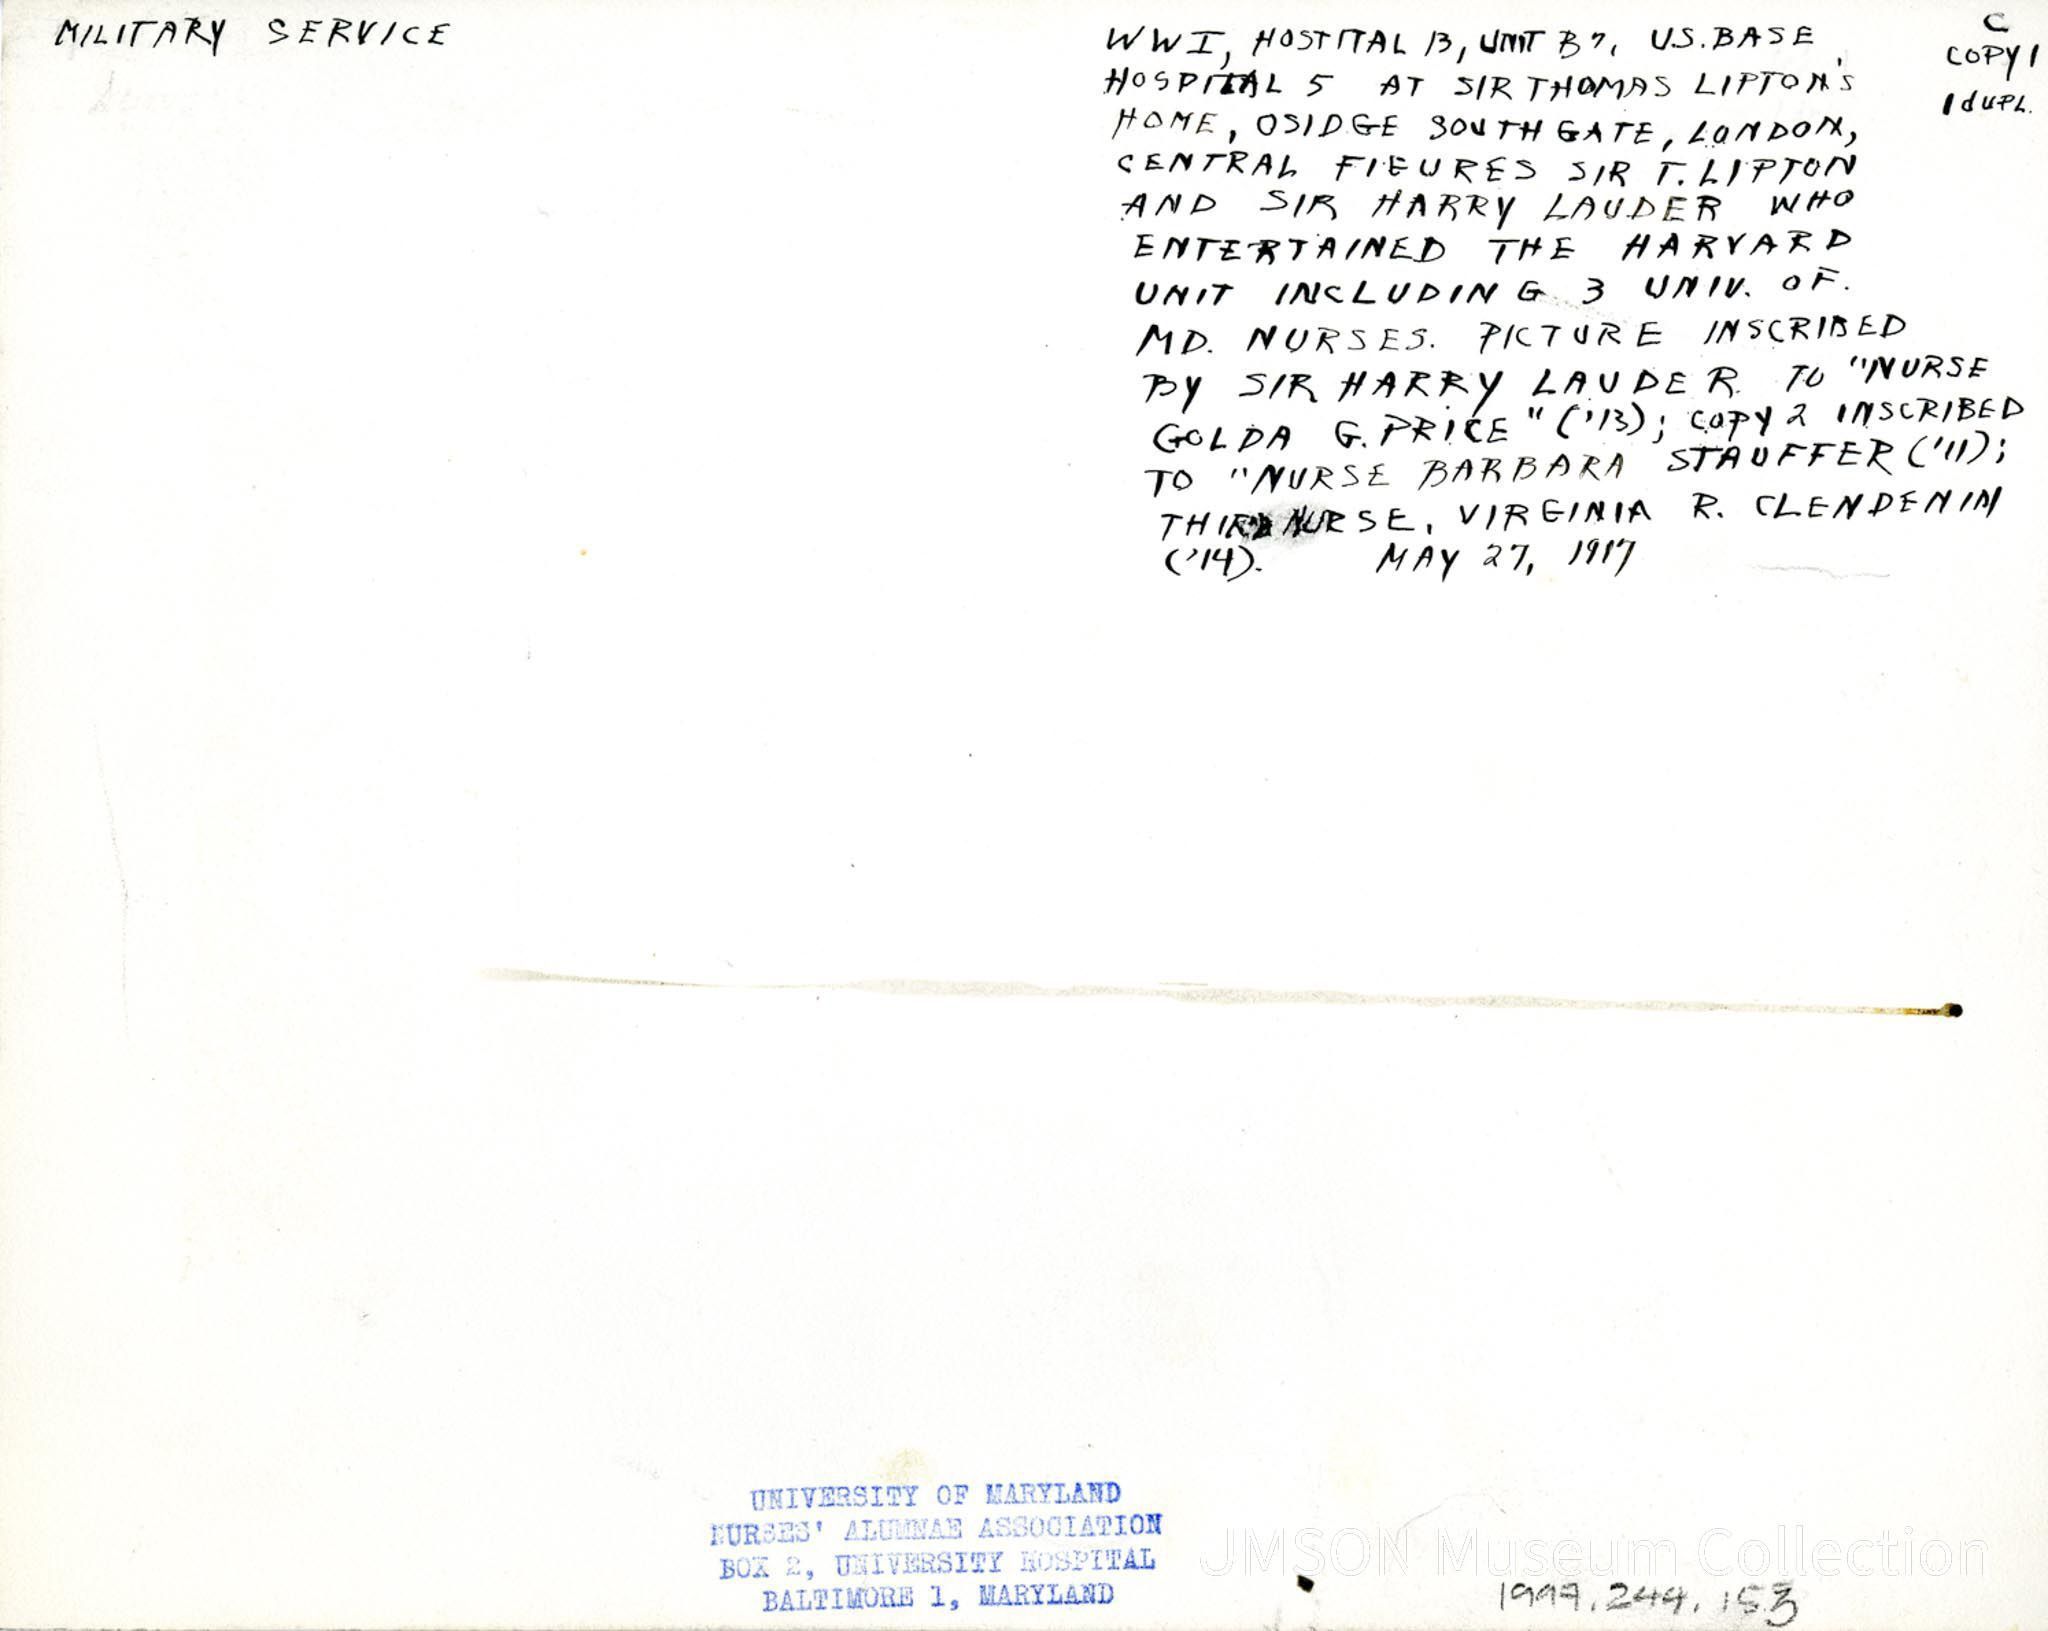 MILITARY SERVICE
C
COPY 1
1 dUPL.
WWI, HOSPITAL 13, UNIT B7, U.S. BASE
HOSPITAL 5 AT SIR THOMAS LIPTON'S
HOME, OSIDGE SOUTHGATE, LONDON,
CENTRAL FIGURES SIR T. LIPTON
AND SIR HARRY LAUDER WHO
ENTERTAINED THE HARVARD
UNIT INCLUDING 3 UNIV. OF.
MD. NURSES. PICTURE INSCRIBED
BY SIR HARRY LAUDER TO "NURSE
GOLDA G. PRICE" ('13); COPY 2 INSCRIBED
TO "NURSE BARBARA STAUFFER ('11);
THIRD NURSE, VIRGINIA R. CLENDENIN
('14). MAY 27, 1917
UNIVERSITY OF MARYLAND
NURSES' ALUMNAE ASSOCIATION
BOX 2, UNIVERSITY HOSPITAL
BALTIMORE 1, MARYLAND
JMSON Museum Collection
1997.244.153